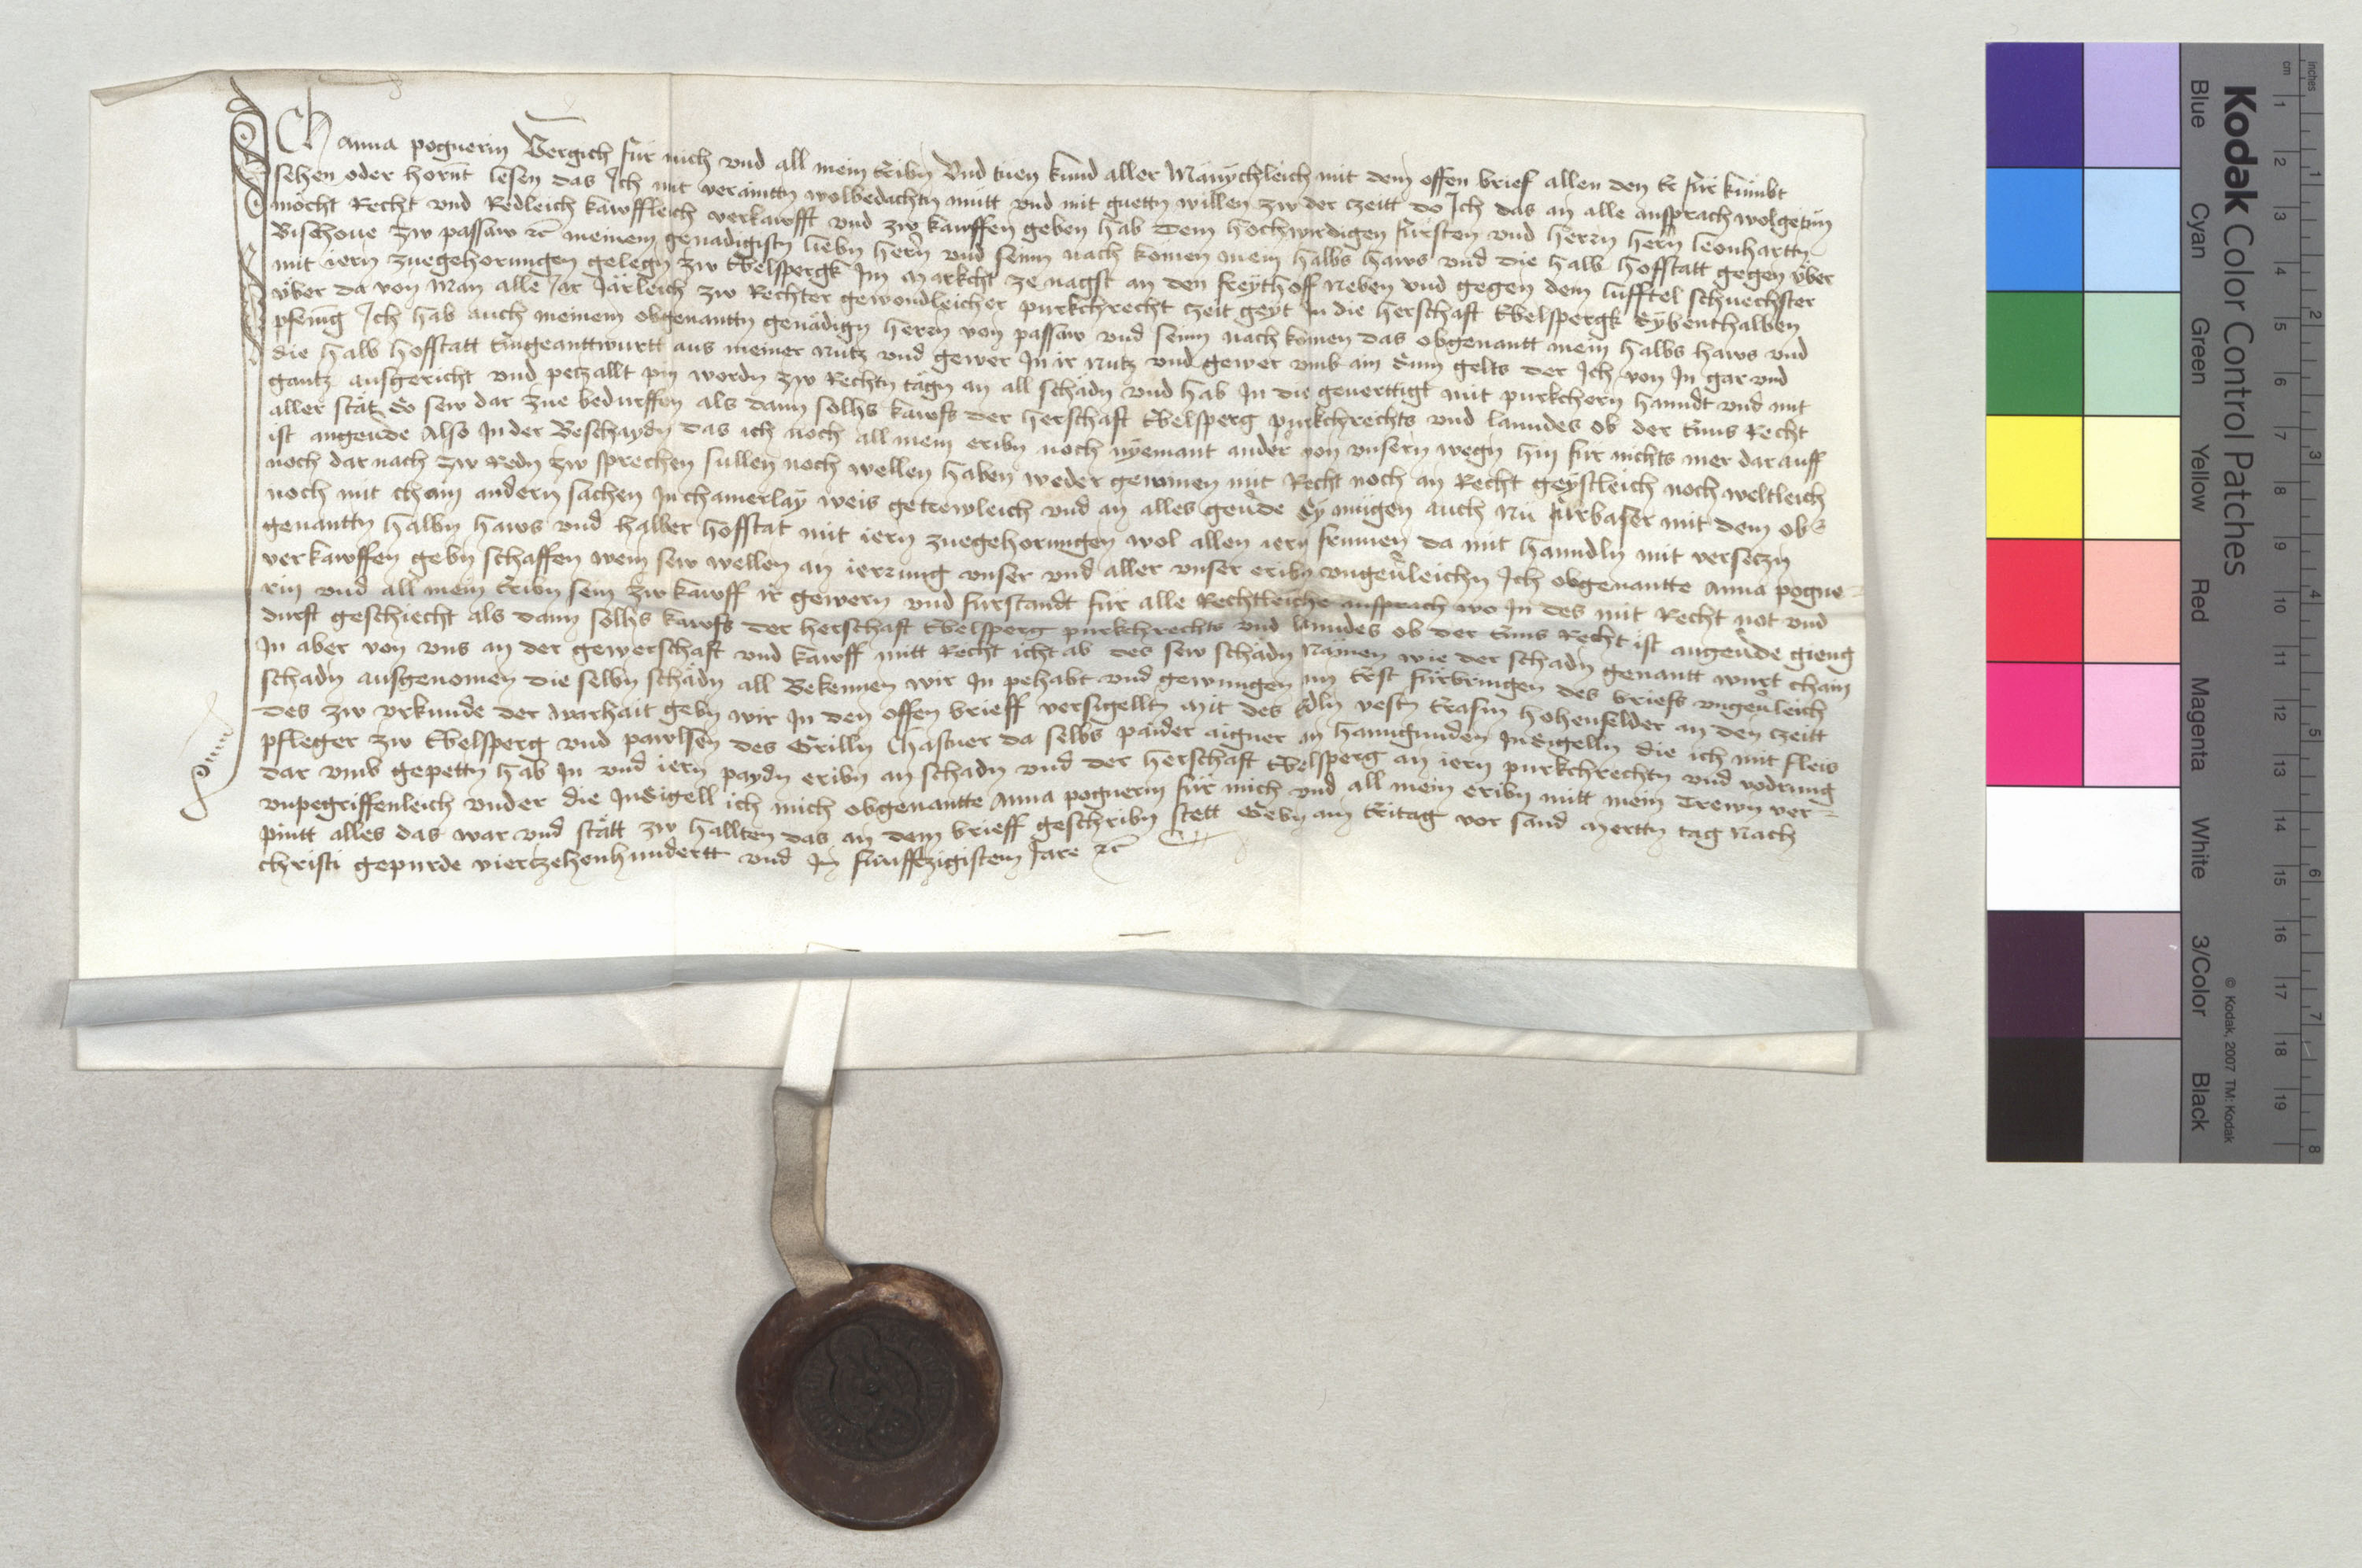 Ich Anna pognerin Vergich für mich vnd all mein Eribn Vnd tuen kund aller Mänychleich mit dem offen brief allen den Er für kümbt
sehen oder hornt lesen das Ich mit veraintn wolbedachtn mütt vnd mit guettn willen zw der czeitt do Ich das an alle ansprach wolgetün
möcht Recht vnd Redleich kawffleich verkawfft vnd zw kawffen geben hab dem hochwirdigen fürsten vnd herrn hern leonhartn
Bischoue zw passaw etc meinem genadigistn liebn hern vnd seinn nach komen mein halbs haws vnd die halb hofstatt gegen über
mit iern zuegehorungen gelegn zw Ebelspergk Im Markcht ze nagst an den freythoff neben vnd gegen dem lüfftel schuechster
über da von Man alle Jar Järleich zw Rechter gewondleicher purkchrecht czeit geyt In die herschaft Ebelspergk Sybenthalben
pfening Ich hab auch meinem obgenantn genädign herrn von passaw vnd seinn nach komen das obgenantt mein halbs haws vnd
die halb hofstatt Eingeanttwurtt aus meiner nutz vnd gewer In ir nutz vnd gewer vmb ain Sum gelts der Ich von In gar vnd
gantz ausgericht vnd petzallt pin wordn zw Rechtn tägn an all schädn vnd hab In die geuerttigt mit purkchern hanndt vnd mit
aller stät do sew dar zue bedurffen als dann solhs kawfs der herschaft Ebelsperg purkchrechts vnd lanndes ob der Enns Recht
ist angeude Also In der Beschaydn das ich noch all mein eribn noch nyemant ander von vnsern wegn hin für nichts mer dar auff
noch dar nach zw Redn zw sprechen sullen noch wellen haben weder gewinen mit Recht noch an Recht geystleich noch weltleich
noch mit chain andern sachen In chainerlay weis getrewleich vnd an alles geude Sy mügen auch Nü fürbaser mit dem ob-
genanttn halbn haws vnd halber hofstat mit iern zuegehorungen wol allen iern frumen da mit hanndln mit versetzn
verkawffen gebn schaffen wem sew wellen an ierrung vnser vnd aller vnser eribn vngeuleichn Ich obgenantte Anna pogne-
rin vnd all mein Eribn sein zw kawff ir gewern vnd fürstandt für alle Rechtleiche ansprach wo In des mit Recht not vnd
durft geschiecht als dann solhs kawfs der herschaft Ebelsperg purkchrechts vnd lanndes ob der Enns Recht ist angeude gieng
In aber von vns an der gewerschaft vnd kawff mitt Recht icht ab des sew schädn Namen wie der schadn genantt wurt chain
schadn ausgenomen die selbn schädn all Bekennen wir In pehabt vnd gewungen im Erst fürbringen des briefs vngeuleich
des zw vrkunde der warhait gebn wir In den offen brieff versigellt mit des Edln vestn Erasm hohenfelder an den czeitt
pfleger zw Ebelsperg vnd pawlsen des Grilln Chastner da selbs paider aigner an hanngunden Insigelln die ich mit fleis
dar vmb gepettn hab In vnd iern paydn eribn an schadn vnd der herschaft Ebelsperg an iern purkchrechtn vnd vodrung
vnpegriffenleich vnder die Insigell ich mich obgenantte Anna pognerin für mich vnd all mein eribn mitt mein Trewn ver-
pintt alles das war vnd stätt zw hallten das an dem brieff geschribn stett Gebn am Eritag vor sand Merttn tag Nach
christi gepurde vierczehenhundertt vnd In fünffczigistem Jare etc
Kodak Color Control Patches
Blue Cyan Green Yellow Red Magenta White 3/Color Black
© Kodak, 2007 TM: Kodak
cm 1 2 3 4 5 6 7 8 9 10 11 12 13 14 15 16 17 18 19
inches 1 2 3 4 5 6 7 8